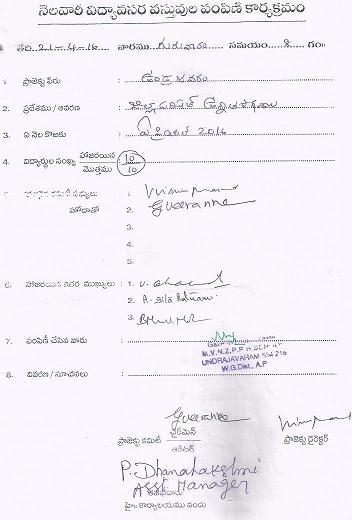 నెలవారీ విద్యావసర వస్తువుల పంపిణీ కార్యక్రమం
తేది. 21-4-16 వారము గురువారం సమయం గం॥
1. ప్రాజెక్టు పేరు ఉండ్రాజవరం
2. ప్రదేశము / ఆవరణ జిల్లా పరిషత్ ఉన్నత పాఠశాల
3. ఏ నెల కొఱకు ఏప్రియల్ 2016
4. విద్యార్థుల సంఖ్య హాజరయిన 10
మొత్తము 10
కమిటీ సభ్యులు 1.
హోదాతో 2.
3.
4.
5.
6. హాజరయిన ఇతర ముఖ్యులు : 1.
2. A. Sita Ratnam
3.
7. పంపిణీ చేసిన వారు
M.V.N.Z.P.P.H SCHOOL
UNDRAJAVARAM-534 216
W.G.Dist., A.P
8. వివరణ / సూచనలు
చైర్మెన్
ప్రాజెక్టు కమిటీ ప్రాజెక్టు డైరెక్టర్
ఆడిటర్
P. Dhanalakshmi
Asst Manager
కార్యాలయము నందు